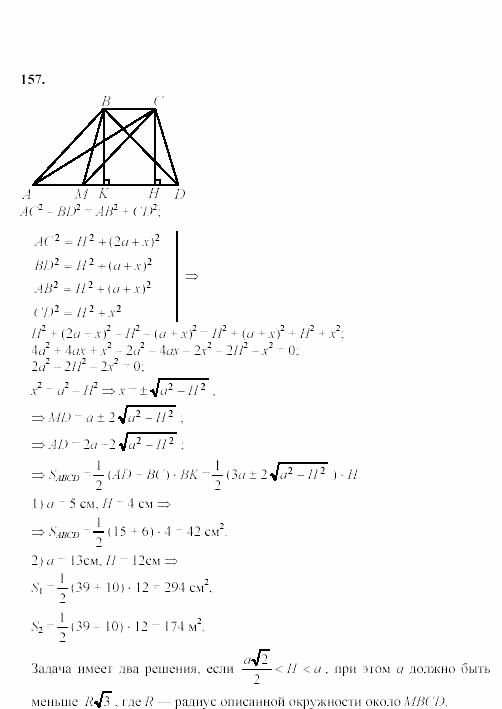 157.
B C
A M K H D
AC² – BD² = AB² + CD²;
AC² = H² + (2a + x)²
BD² = H² + (a + x)²
AB² = H² + (a + x)² ⇒
CD² = H² + x²
H² + (2a + x)² – H² – (a + x)² = H² + (a + x)² + H² + x²;
4a² + 4ax + x² – 2a² – 4ax – 2x² – 2H² – x² = 0;
2a² – 2H² – 2x² = 0;
x² = a² – H² ⇒ x = ±√(a² – H²) ,
⇒ MD = a ± 2√(a² – H²) ;
⇒ AD = 2a ± 2√(a² – H²) ;
⇒ S_ABCD = 1/2 (AD – BC) · BK = 1/2 (3a ± 2√(a² – H²) ) · H
1) a = 5 см, H = 4 см ⇒
⇒ S_ABCD = 1/2 (15 + 6) · 4 = 42 см².
2) a = 13см, H = 12см ⇒
S₁ = 1/2 (39 + 10) · 12 = 294 см²,
S₂ = 1/2 (39 – 10) · 12 = 174 м².
Задача имеет два решения, если a√2/2 < H < a , при этом a должно быть
меньше R√3 , где R — радиус описанной окружности около MBCD.